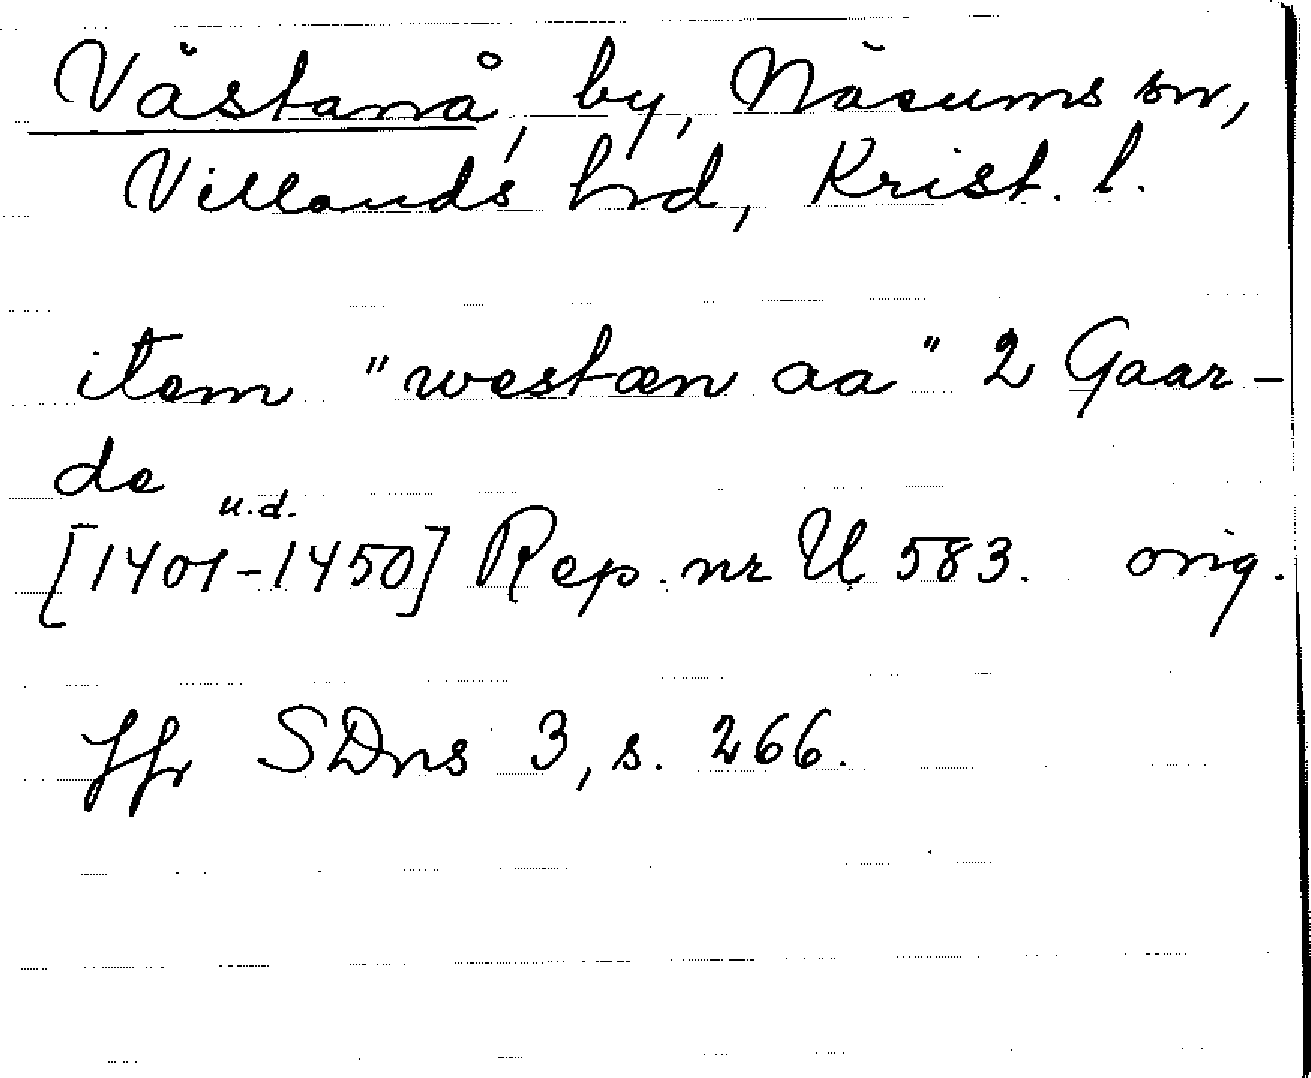 Västanå, by, Näsums sn,
Villands hrd, Krist. l.
item "westæn aa" 2 Gaar-
de
u.d.
[1401-1450] Rep. nr U 583. orig.
Jfr SDns 3, s. 266.